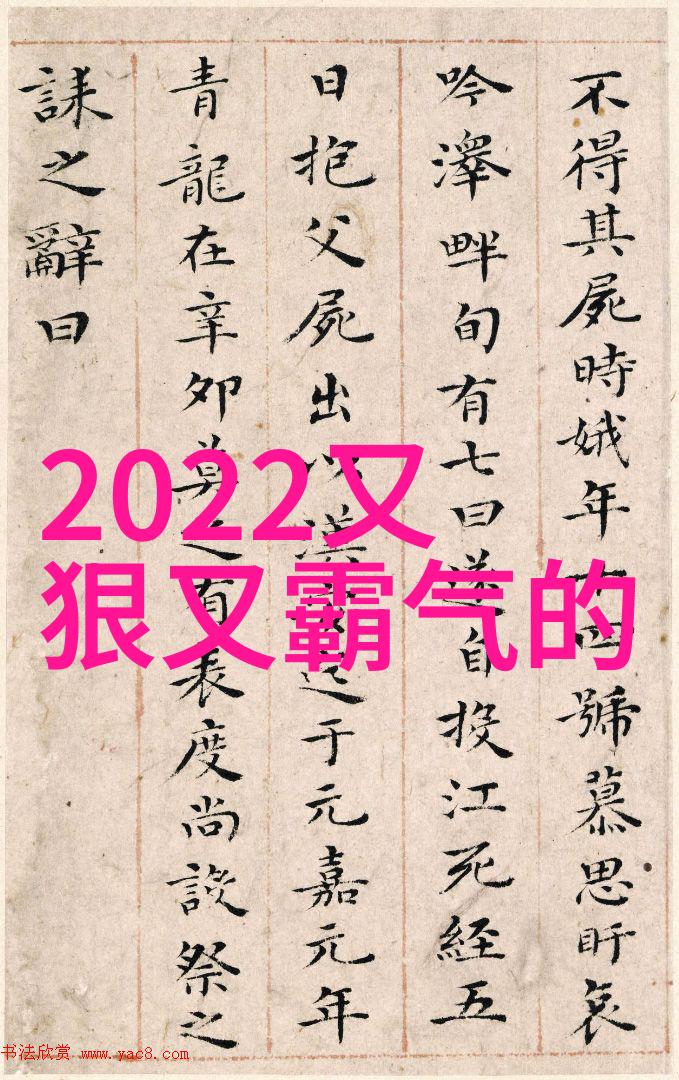 不得其屍時娥年十四號慕思盱哀
吟澤畔旬有七日遂自投江死經五
日抱父屍出以漢
于元嘉元年
青龍在辛卯莫之有表度尚設祭之
誄之辭曰
2022又
狠又霸气的
书法欣赏 www.yac8.com